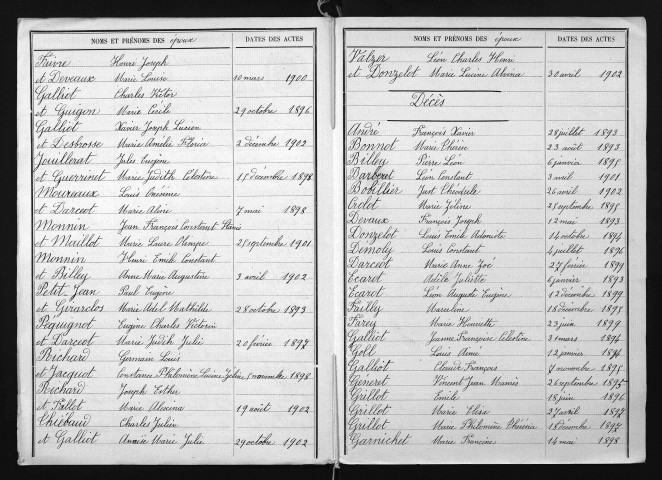 NOMS ET PRÉNOMS DES époux DATES DES ACTES
Faivre Henri Joseph
et Deveaux Marie Louise 10 mars 1900
Galliot Charles Victor
et Guigon Marie Cécile 29 octobre 1896
Galliot Xavier Joseph Lucien
et Desbrosse Marie Amélie Floria 2 décembre 1902
Jouillerat Jules Eugène
et Guerrinet Marie Judith Célestine 15 décembre 1898
Moureaux Louis Onésime
et Darcot Marie Aline 7 mai 1898
Monnin Jean François Constant
et Maillot Marie Laure Olympe 25 septembre 1901
Monnin Henri Emile Constant
et Billey Anne Marie Augustine 3 avril 1902
Petit Jean Paul Eugène
et Girardos Marie Adel Mathilde 28 octobre 1893
Péquignot Eugène Charles Victorin
et Darcot Marie Judith Julie 20 février 1897
Richard Germain Louis
et Jacquot Constance Philomène Lucine Julie 5 novembre 1898
Richard Joseph Esther
et Fallot Marie Alexina 19 août 1902
Thiébaud Charles Julien
et Galliot Marie Julie 29 octobre 1902
NOMS ET PRÉNOMS DES époux DATES DES ACTES
Valzer Léon Charles Henri
et Donzelot Marie Lucine Alvina 30 avril 1902
Décès
André François Xavier 28 juillet 1893
Bonnot Marie 23 août 1893
Billey Pierre Léon 6 janvier 1895
Barberet Léon Constant 3 avril 1901
Bobillier Just Théodule 26 avril 1902
Marie Zéline 25 septembre 1895
Devaux François Joseph 12 mai 1893
Donzelot Louis Emile 14 octobre 1894
Demoly Louis Constant 4 juillet 1896
Darcot Marie Anne Zoé 27 février 1899
Ecarot Adèle Juliette 6 janvier 1893
Ecarot Léon Auguste Eugène 12 décembre 1899
Failly Marceline 18 décembre 1895
Farey Marie Henriette 23 juin 1899
Galliot Jeanne Françoise Célestine 31 mars 1894
Goll Louis Aimé 12 janvier
Galliot Claude François 7 novembre 1895
Generet Vincent Jean Mamès 26 septembre 1895
Grillot Emile 18 juin 1896
Grillot Marie Elise 27 avril 1897
Grillot Marie Philomène 18 décembre 1897
Garnichet Marie Francine 14 mai 1898